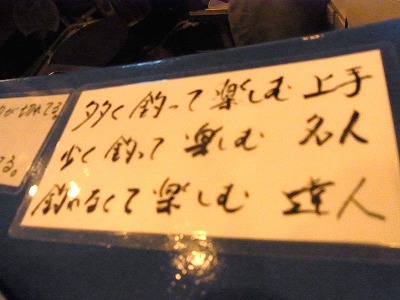 多く釣って楽しむ 上手
少く釣って楽しむ 名人
釣れなくて楽しむ 達人
が切れてる
る。